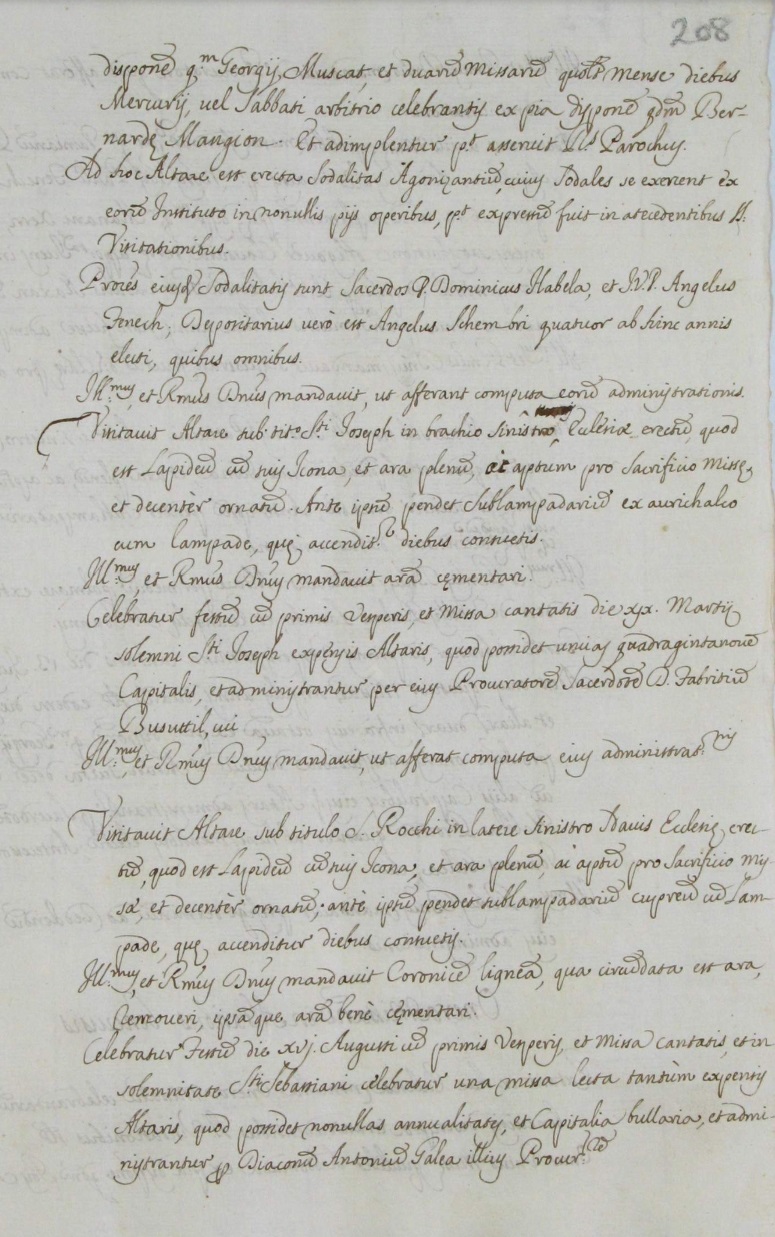 208
disponẽ q.ᵐ Georgij Muscat, et duarũ Missarũ quolt mense diebus
Mercurij, vel Sabbati arbitrio celebrantis ex pia disponẽ qdm̃ Ber-
nardę Mangion. Et adimplentur p.t asseruit Rs Parochus.
Ad hoc Altare est erecta Sodalitas Agonizantiũ, cuius Sodales se exercent ex
eorũ Instituto in nonullis pijs operibus, p.t expressũ fuit in atecedentibus
Visitationibus.
Proẽs eiusd Sodalitatis sunt Sacerdos P. Dominicus Habela, et Angelus
Fenech; Depositarius verò est Angelus Schembri quatuor ab hinc annis
electi, quibus omnibus.
Ill.mus, et Rmus Dnus mandavit, ut afferant computa eorũ administrationis.
Visitavit Altare sub tit.o S.ti Joseph in brachio sinistro Ecclesiæ erectũ, quod
est Lapideũ cũ suis Icona, et ara plenũ, ac aptum pro Sacrificio Missę,
et decentèr ornatũ. Ante ipsũ pendet sublampadariũ ex aurichalco
cum lampade, quę accendit.r diebus consuetis.
Ill.mus, et Rmus Dnus mandavit arã cęmentari.
Celebratur festũ cũ primis Vesperis, et Missa cantatis die xjx. Martij
solemni S.ti Joseph expensis Altaris, quod possidet uncias quadragintanovẽ
Capitalis, et administrantur per eius Procuratorẽ Sacerdotẽ D. Fabritiũ
Busuttil, cui
Ill.mus, et Rmus Dnus mandavit, ut afferat computa eius administrat.nis
Visitavit Altare sub titulo S. Rocchi in latere sinistro Navis Ecclesię erec-
tũ, quod est Lapideũ cũ suis Icona, et ara plenũ, ac aptũ pro Sacrificio Mis-
sæ, et decentèr ornatũ; antè ipsũ pendet sublampadariũ cupreũ cũ Lam-
pade, quę accenditur diebus consuetis.
Ill.mus, et Rmus Dnus mandavit Coronicẽ ligneã, qua circũdata est ara,
removeri, ipsãque arã benè cęmentari.
Celebratur Festũ die xvj. Augusti cũ primis Vesperis, et Missa cantatis, et in
solemnitate S.ti Sebastiani celebratur una missa lecta tantùm expensis
Altaris, quod possidet nonullas annualitates, et Capitalia bullaria, et admi-
nistrantur p Diaconũ Antoniũ Galea illius Procur.rẽ